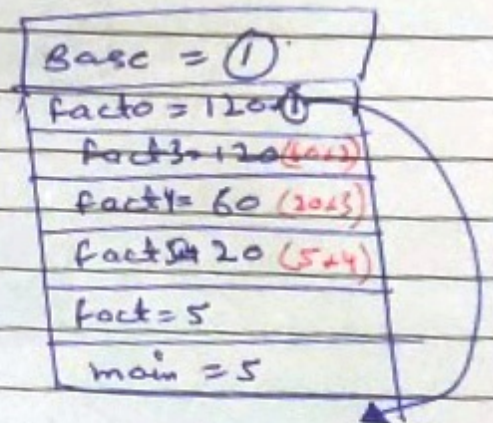 Base = 1
facto = 120
fact3 = 120 (60*2)
fact4 = 60 (20*3)
fact5 20 (5*4)
fact = 5
main = 5